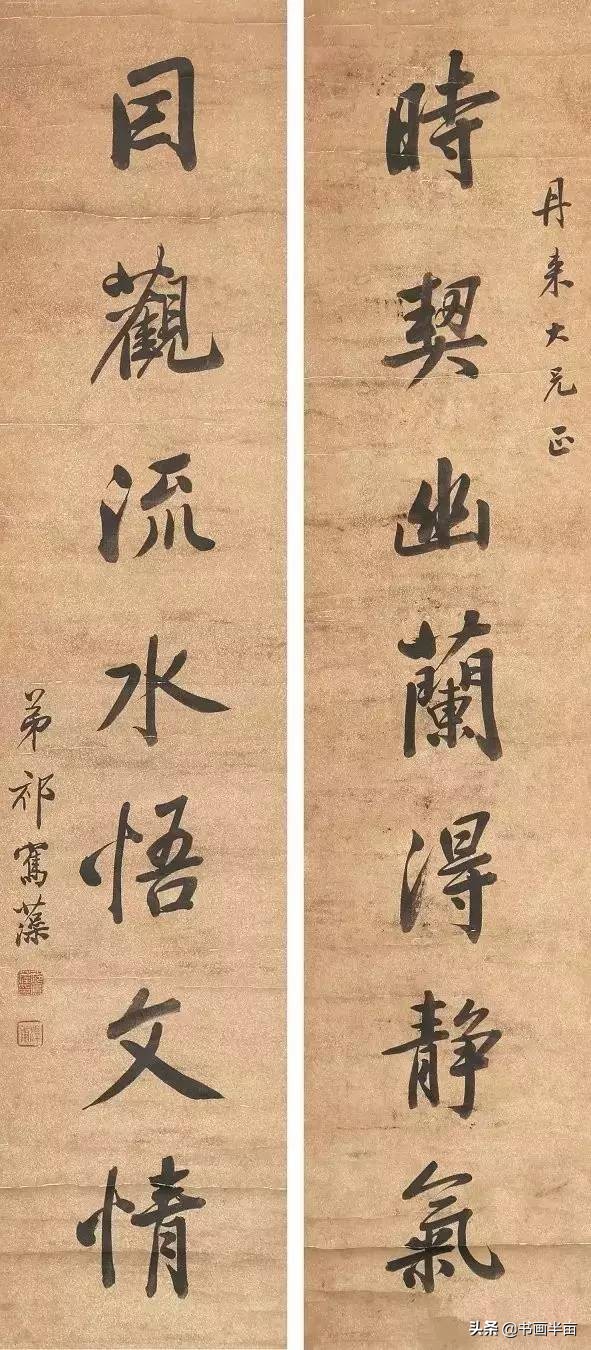 丹来大兄正
時契幽蘭得静氣
囙觀流水悟文情
弟祁寯藻
头条 @书画半亩